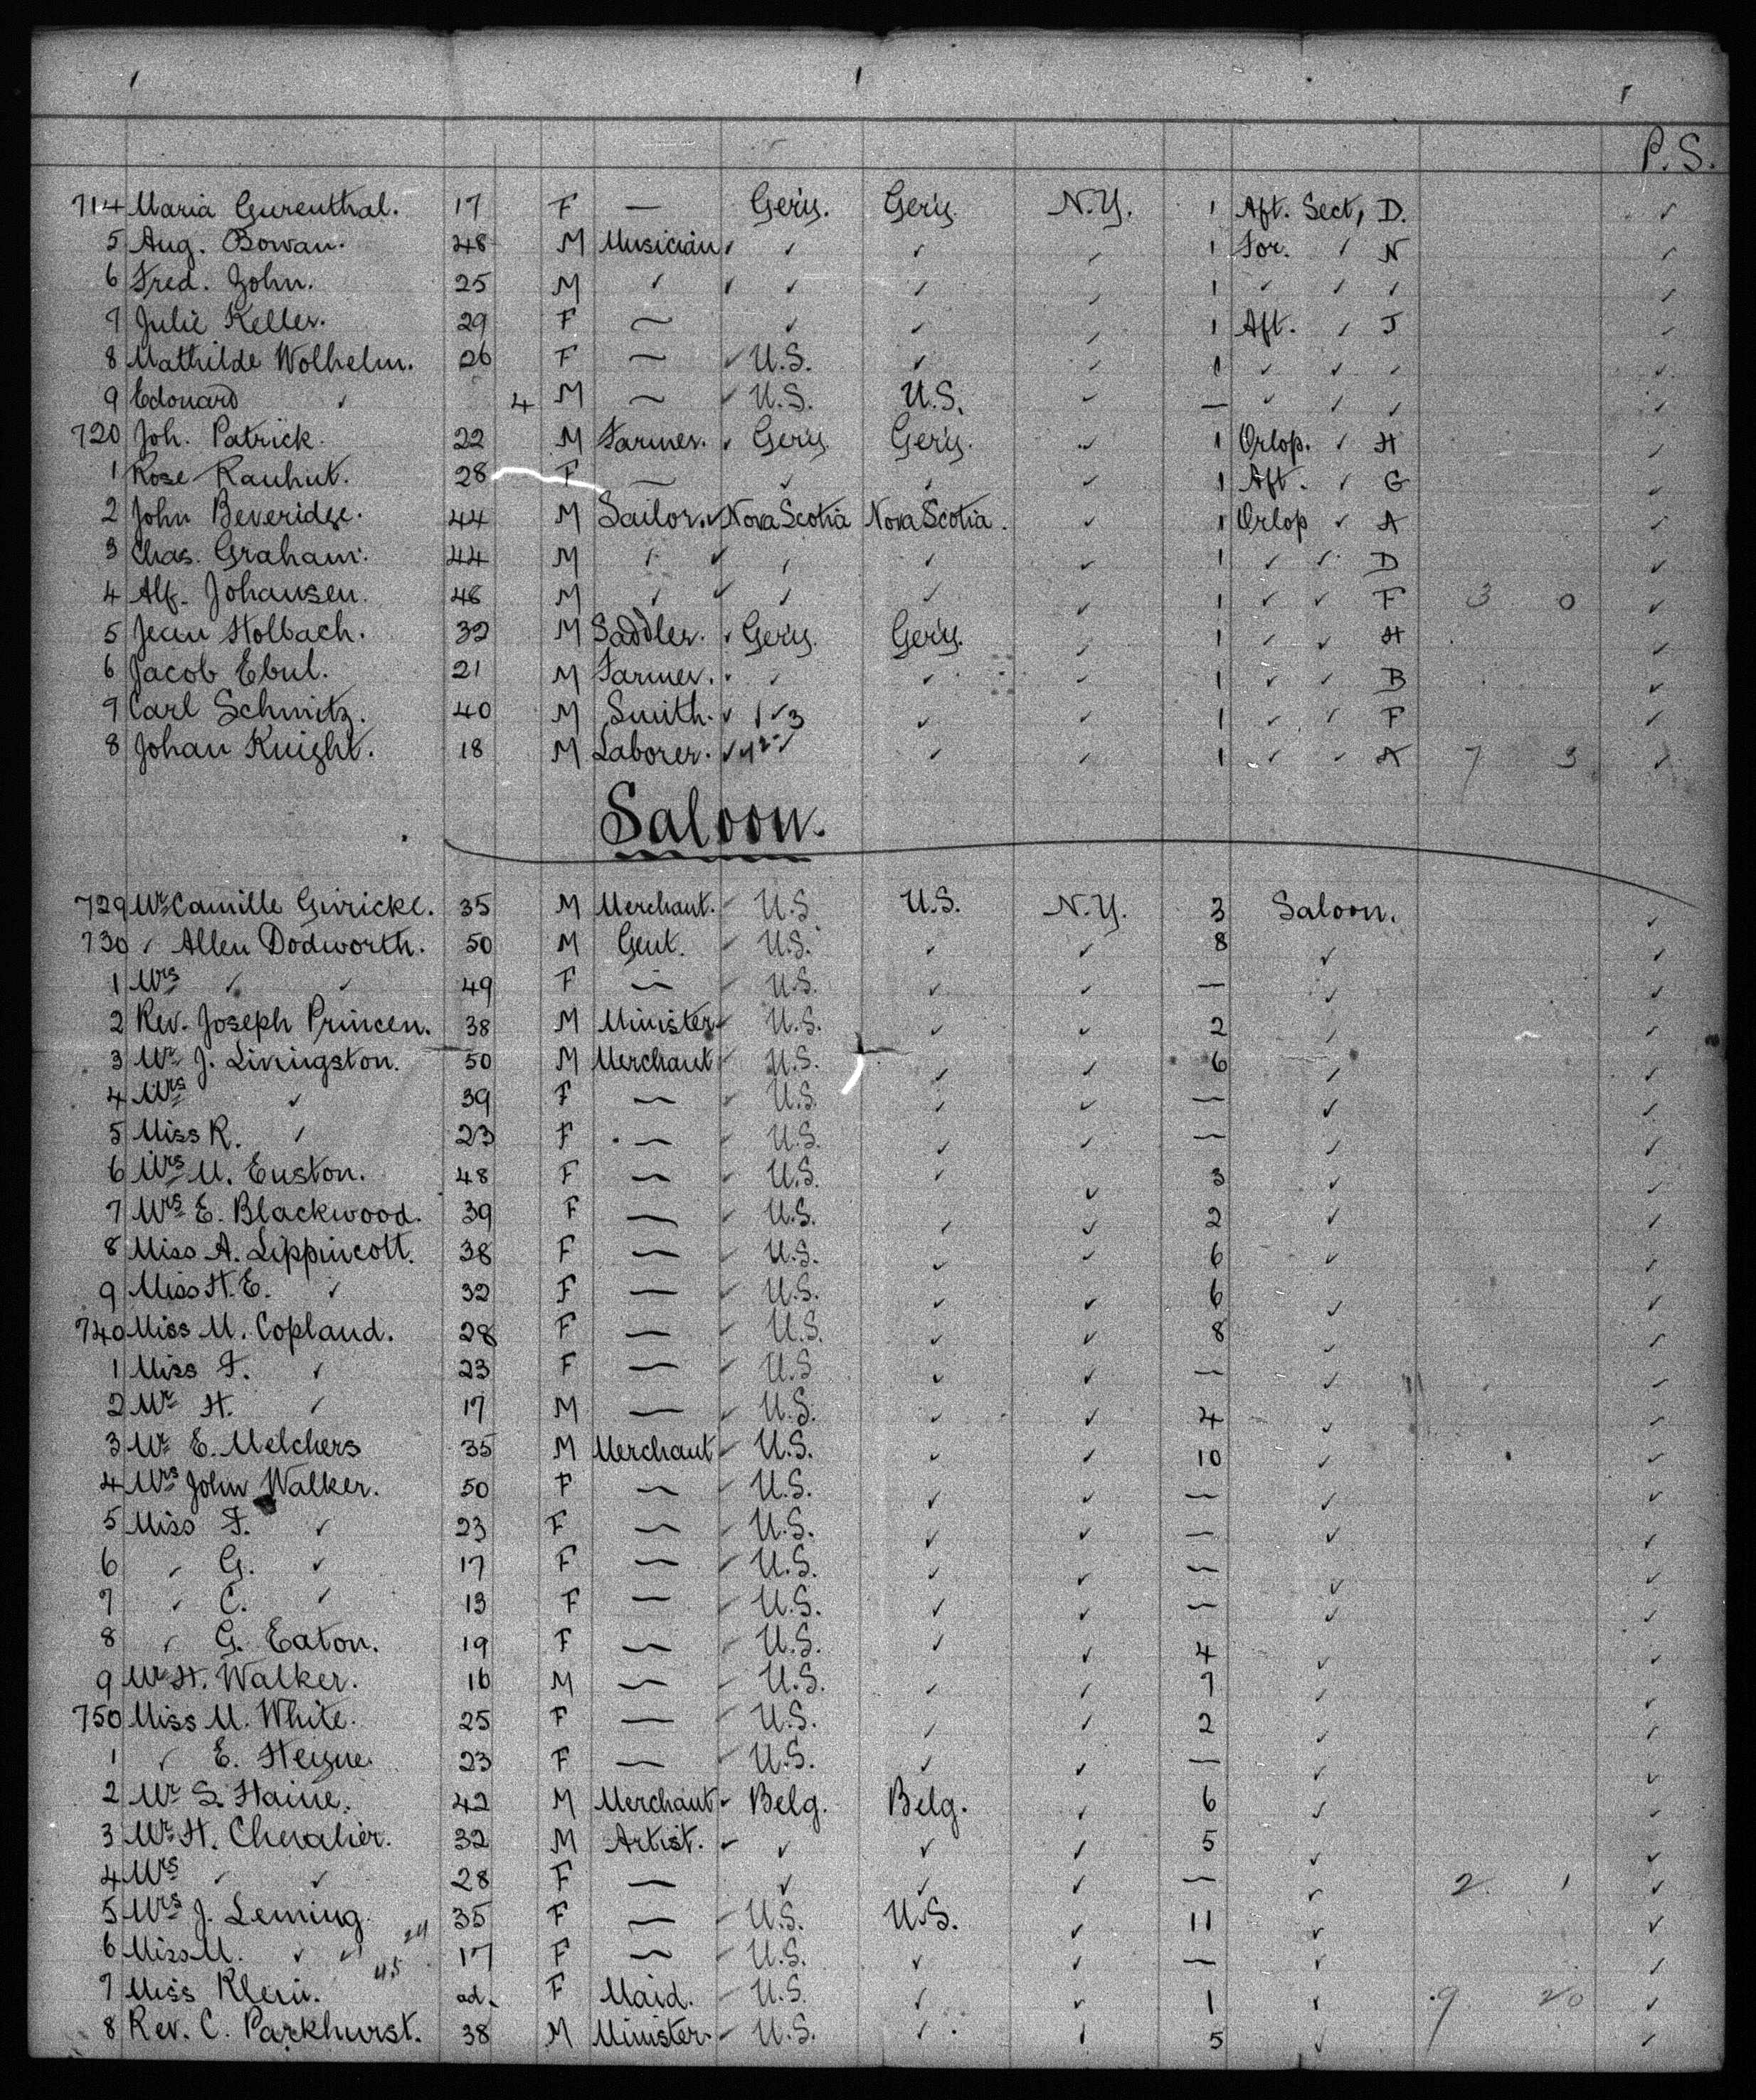 P. S.
714 Maria Gurenthal. 17 F — Gery. Gery. N.Y. 1 Aft. Sect, D. ✓
5 Aug. Bowan. 48 M Musician ✓ ✓ ✓ ✓ 1 For. ✓ N ✓
6 Fred. John. 25 M ✓ ✓ ✓ ✓ ✓ 1 ✓ ✓ ✓ ✓
7 Julie Keller. 29 F — ✓ ✓ ✓ 1 Aft. ✓ J ✓
8 Mathilde Wolhelm. 26 F — ✓ U.S. ✓ ✓ 1 ✓ ✓ ✓ ✓
9 Edouard ✓ 4 M — ✓ U.S. U.S. ✓ — ✓ ✓ ✓ ✓
720 Joh. Patrick. 22 M Farmer. ✓ Gery. Gery. ✓ 1 Orlop. ✓ H ✓
1 Rose Rauhut. 28 F — ✓ ✓ ✓ 1 Aft. ✓ G ✓
2 John Beveridge. 44 M Sailor. ✓ Nova Scotia Nova Scotia. ✓ 1 Orlop ✓ A ✓
3 Chas. Graham. 44 M ✓ ✓ ✓ ✓ ✓ 1 ✓ ✓ D ✓
4 Alf. Johansen. 46 M ✓ ✓ ✓ ✓ ✓ 1 ✓ ✓ F 3 0 ✓
5 Jean Holbach. 32 M Saddler. ✓ Gery. Gery. ✓ 1 ✓ ✓ H ✓
6 Jacob Ebul. 21 M Farmer. ✓ ✓ ✓ ✓ 1 ✓ ✓ B ✓
7 Carl Schmitz. 40 M Smith. ✓ 1 ✓ 3 ✓ ✓ 1 ✓ ✓ F ✓
8 Johan Knight. 18 M Laborer. ✓ ✓ ✓ ✓ 1 ✓ ✓ A 7 3 ✓
Saloon.
729 Mr Camille Givricke. 35 M Merchant. U.S. U.S. N.Y. 3 Saloon. ✓
730 ✓ Allen Dodworth. 50 M Gent. ✓ U.S. ✓ ✓ 8 ✓ ✓
1 Mrs ✓ ✓ 49 F — ✓ U.S. ✓ ✓ — ✓ ✓
2 Rev. Joseph Princen. 38 M Minister ✓ U.S. ✓ ✓ 2 ✓ ✓
3 Mr J. Livingston. 50 M Merchant ✓ U.S. ✓ ✓ 6 ✓ ✓
4 Mrs ✓ 39 F — ✓ U.S. ✓ ✓ — ✓ ✓
5 Miss R. ✓ 23 F — ✓ U.S. ✓ ✓ — ✓ ✓
6 Mrs M. Euston. 48 F — ✓ U.S. ✓ ✓ 3 ✓ ✓
7 Mrs E. Blackwood. 39 F — ✓ U.S. ✓ ✓ 2 ✓ ✓
8 Miss A. Lippincott. 38 F — ✓ U.S. ✓ ✓ 6 ✓ ✓
9 Miss H.E. ✓ 32 F — ✓ U.S. ✓ ✓ 6 ✓ ✓
740 Miss M. Copland. 28 F — ✓ U.S. ✓ ✓ 8 ✓ ✓
1 Miss F. ✓ 23 F — ✓ U.S ✓ ✓ — ✓ ✓
2 Mr H. ✓ 17 M — ✓ U.S. ✓ ✓ 4 ✓ ✓
3 Mr E. Melchers 35 M Merchant ✓ U.S. ✓ ✓ 10 ✓ ✓
4 Mrs John Walker. 50 F — ✓ U.S. ✓ ✓ — ✓ ✓
5 Miss F. ✓ 23 F — ✓ U.S. ✓ ✓ — ✓ ✓
6 ✓ G. ✓ 17 F — ✓ U.S. ✓ ✓ — ✓ ✓
7 ✓ C. ✓ 13 F — ✓ U.S. ✓ ✓ — ✓ ✓
8 ✓ G. Eaton. 19 F — ✓ U.S. ✓ ✓ 4 ✓ ✓
9 Mr H. Walker. 16 M — ✓ U.S. ✓ ✓ 7 ✓ ✓
750 Miss M. White. 25 F — ✓ U.S. ✓ ✓ 2 ✓ ✓
1 ✓ E. Heyne. 23 F — ✓ U.S. ✓ ✓ — ✓ ✓
2 Mr S. Haine. 42 M Merchant ✓ Belg. Belg. ✓ 6 ✓ ✓
3 Mr H. Chevalier. 32 M Artist. ✓ ✓ ✓ ✓ 5 ✓ ✓
4 Mrs ✓ ✓ 28 F — ✓ ✓ ✓ — ✓ 2 1 ✓
5 Mrs J. Leming. 35 F — ✓ U.S. U.S. ✓ 11 ✓ ✓
6 Miss M. ✓ 17 F — ✓ U.S. ✓ ✓ — ✓ ✓
7 Miss Klein. 45 ad. F Maid. ✓ U.S. ✓ ✓ 1 ✓ 9 20 ✓
8 Rev. C. Parkhurst. 38 M Minister ✓ U.S. ✓ ✓ 5 ✓ ✓